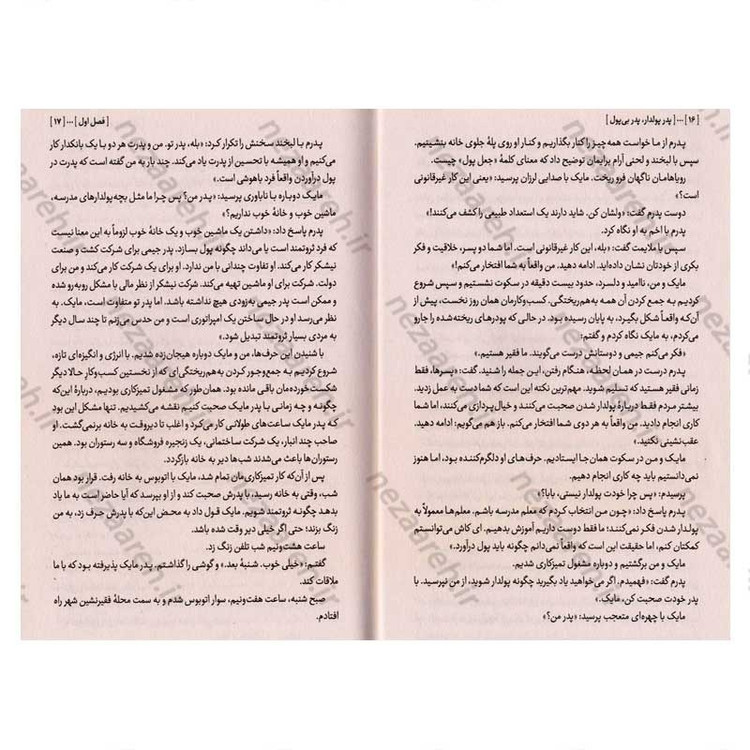 [۱۶] ... [ پدر پولدار، پدر بی‌پول ]
پدرم از ما خواست همه چیز را کنار بگذاریم و کنار او روی پلهٔ جلوی خانه بنشینیم.
سپس با لبخند و لحنی آرام برایمان توضیح داد که معنای کلمهٔ «جعل پول» چیست.
رویاهامان ناگهان فرو ریخت. مایک با صدایی لرزان پرسید: «یعنی این کار غیرقانونی
است؟»
دوست پدرم گفت: «ولشان کن. شاید دارند یک استعداد طبیعی را کشف می‌کنند!»
پدرم با اخم به او نگاه کرد.
سپس با ملایمت گفت: «بله، این کار غیرقانونی است. اما شما دو پسر، خلاقیت و فکر
بکری از خودتان نشان داده‌اید. ادامه دهید. من واقعاً به شما افتخار می‌کنم!»
مایک و من، ناامید و دلسرد، حدود بیست دقیقه در سکوت نشستیم و سپس شروع
کردیم به جمع کردن آن همه به‌هم‌ریختگی. کسب‌وکارمان همان روز نخست، پیش از
آن‌که واقعاً شکل بگیرد، به پایان رسیده بود. در حالی که پودرهای ریخته‌شده را جارو
می‌کردم، به مایک نگاه کردم و گفتم:
«فکر می‌کنم جیمی و دوستانش درست می‌گویند. ما فقیر هستیم.»
پدرم درست در همان لحظه، هنگام رفتن، این جمله را شنید. گفت: «پسرها، فقط
زمانی فقیر هستید که تسلیم شوید. مهم‌ترین نکته این است که شما دست به عمل زدید.
بیشتر مردم فقط دربارهٔ پولدار شدن صحبت می‌کنند و خیال‌پردازی می‌کنند، اما شما
کاری انجام دادید. من واقعاً به هر دوی شما افتخار می‌کنم. باز هم می‌گویم: ادامه دهید.
عقب‌نشینی نکنید.»
مایک و من در سکوت همان جا ایستادیم. حرف‌های او دلگرم‌کننده بود، اما هنوز
نمی‌دانستیم باید چه کاری انجام دهیم.
پرسیدم: «پس چرا خودت پولدار نیستی، بابا؟»
پدرم پاسخ داد: «چون من انتخاب کردم که معلم مدرسه باشم. معلم‌ها معمولاً به
پولدار شدن فکر نمی‌کنند؛ ما فقط دوست داریم آموزش بدهیم. ای کاش می‌توانستم
کمکتان کنم، اما حقیقت این است که واقعاً نمی‌دانم چگونه باید پول درآورد.»
مایک و من برگشتیم و دوباره مشغول تمیزکاری شدیم.
پدرم گفت: «فهمیدم. اگر می‌خواهید یاد بگیرید چگونه پولدار شوید، از من نپرسید. با
پدر خودت صحبت کن، مایک.»
مایک با چهره‌ای متعجب پرسید: «پدر من؟»
[ فصل اول ] ... [۱۷]
پدرم با لبخند سخنش را تکرار کرد: «بله، پدر تو. من و پدرت هر دو با یک بانکدار کار
می‌کنیم و او همیشه با تحسین از پدرت یاد می‌کند. چند بار به من گفته است که پدرت در
پول درآوردن واقعاً فرد باهوشی است.»
مایک دوباره با ناباوری پرسید: «پدر من؟ پس چرا ما مثل بچه‌پولدارهای مدرسه،
ماشین خوب و خانهٔ خوب نداریم؟»
پدرم پاسخ داد: «داشتن یک ماشین خوب و یک خانهٔ خوب لزوماً به این معنا نیست
که فرد ثروتمند است یا می‌داند چگونه پول بسازد. پدر جیمی برای شرکت کشت و صنعت
نیشکر کار می‌کند. او تفاوت چندانی با من ندارد. او برای یک شرکت کار می‌کند و من برای
دولت. شرکت برای او ماشین تهیه می‌کند. شرکت نیشکر از نظر مالی با مشکل روبه‌رو شده
و ممکن است پدر جیمی به‌زودی هیچ نداشته باشد. اما پدر تو متفاوت است، مایک. به
نظر می‌رسد او در حال ساختن یک امپراتوری است و من حدس می‌زنم تا چند سال دیگر
به مردی بسیار ثروتمند تبدیل شود.»
با شنیدن این حرف‌ها، من و مایک دوباره هیجان‌زده شدیم. با انرژی و انگیزه‌ای تازه،
شروع کردیم به جمع‌وجور کردن به‌هم‌ریختگی‌ای که از نخستین کسب‌وکار حالا دیگر
شکست‌خورده‌مان باقی مانده بود. همان طور که مشغول تمیزکاری بودیم، دربارهٔ این‌که
چگونه و چه زمانی با پدر مایک صحبت کنیم نقشه می‌کشیدیم. تنها مشکل این بود
که پدر مایک ساعت‌های طولانی کار می‌کرد و اغلب تا دیروقت به خانه برنمی‌گشت. او
صاحب چند انبار، یک شرکت ساختمانی، یک زنجیره فروشگاه و سه رستوران بود. همین
رستوران‌ها باعث می‌شدند شب‌ها دیر به خانه بازگردد.
پس از آن‌که کار تمیزکاری‌مان تمام شد، مایک با اتوبوس به خانه رفت. قرار بود همان
شب، وقتی به خانه رسید، با پدرش صحبت کند و از او بپرسد که آیا حاضر است به ما یاد
بدهد چگونه ثروتمند شویم. مایک قول داد به محض این‌که با پدرش حرف زد، به من
زنگ بزند؛ حتی اگر خیلی دیر وقت شده باشد.
ساعت هشت‌ونیم شب تلفن زنگ زد.
گفتم: «خیلی خوب. شنبهٔ بعد.» و گوشی را گذاشتم. پدر مایک پذیرفته بود که با ما
ملاقات کند.
صبح شنبه، ساعت هفت‌ونیم، سوار اتوبوس شدم و به سمت محلهٔ فقیرنشین شهر راه
افتادم.
nezaareh.ir